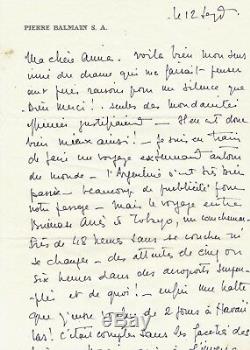 PIERRE BALMAIN S. A.
le 12 Sept
Ma chère Anna. voilà bien mon sens
inné du drame qui me faisait penser
que raisons pour un silence que
Dieu Merci! seules des mondanités
justifiaient — Et c'est donc
bien mieux ainsi! — je suis en train
de faire un voyage exténuant autour
du monde — l'Argentine s'est très bien
passée — beaucoup de publicité pour
notre passage — mais le voyage entre
Buenos Aires à Tokyo, un cauchemar
Près de 48 heures sans se coucher ni
se changer — des attentes de cinq ou
six heures dans des aéroports
et de quoi! — enfin une halte
que de 2 jours à Hawaï
las! c'était compter sans les facéties des
withart